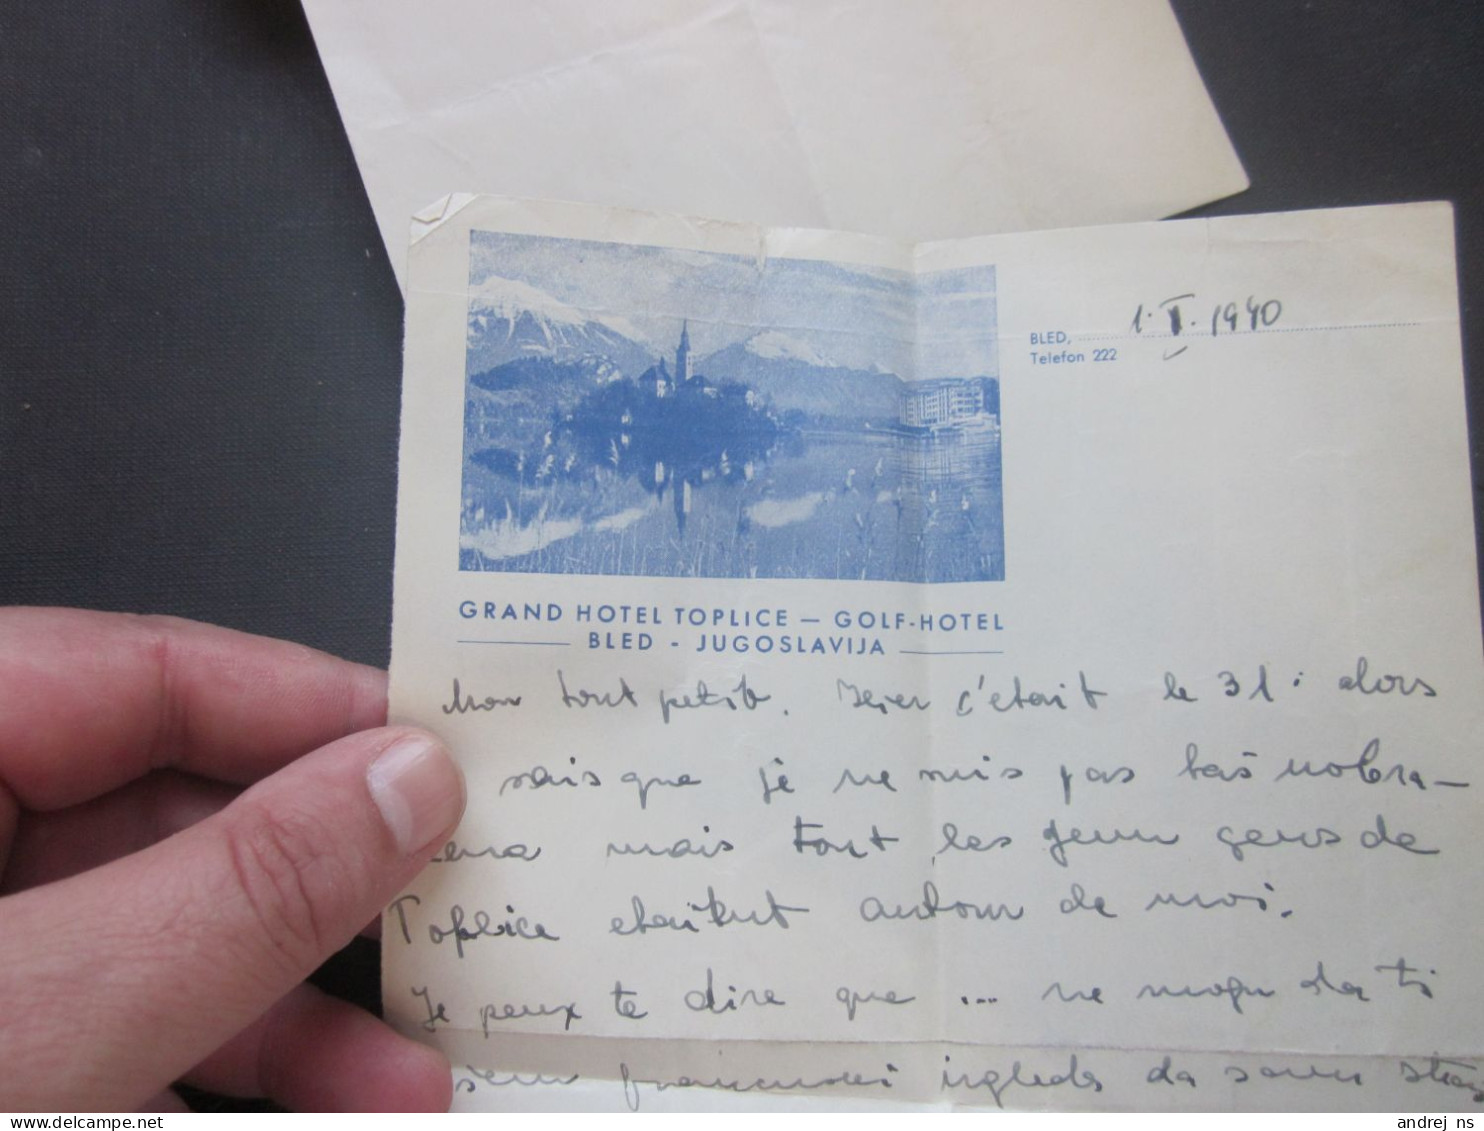 BLED, 1. I. 1940
Telefon 222
GRAND HOTEL TOPLICE — GOLF-HOTEL
BLED - JUGOSLAVIJA
Mon tout petit. Hier c'était le 31. alors
sais que je ne suis pas baš
mais tout les jeun gens de
Toplice etaitent autour de moi.
Je peux te dire que ... ne mogu da ti
izgleda da sam
andrej_ns